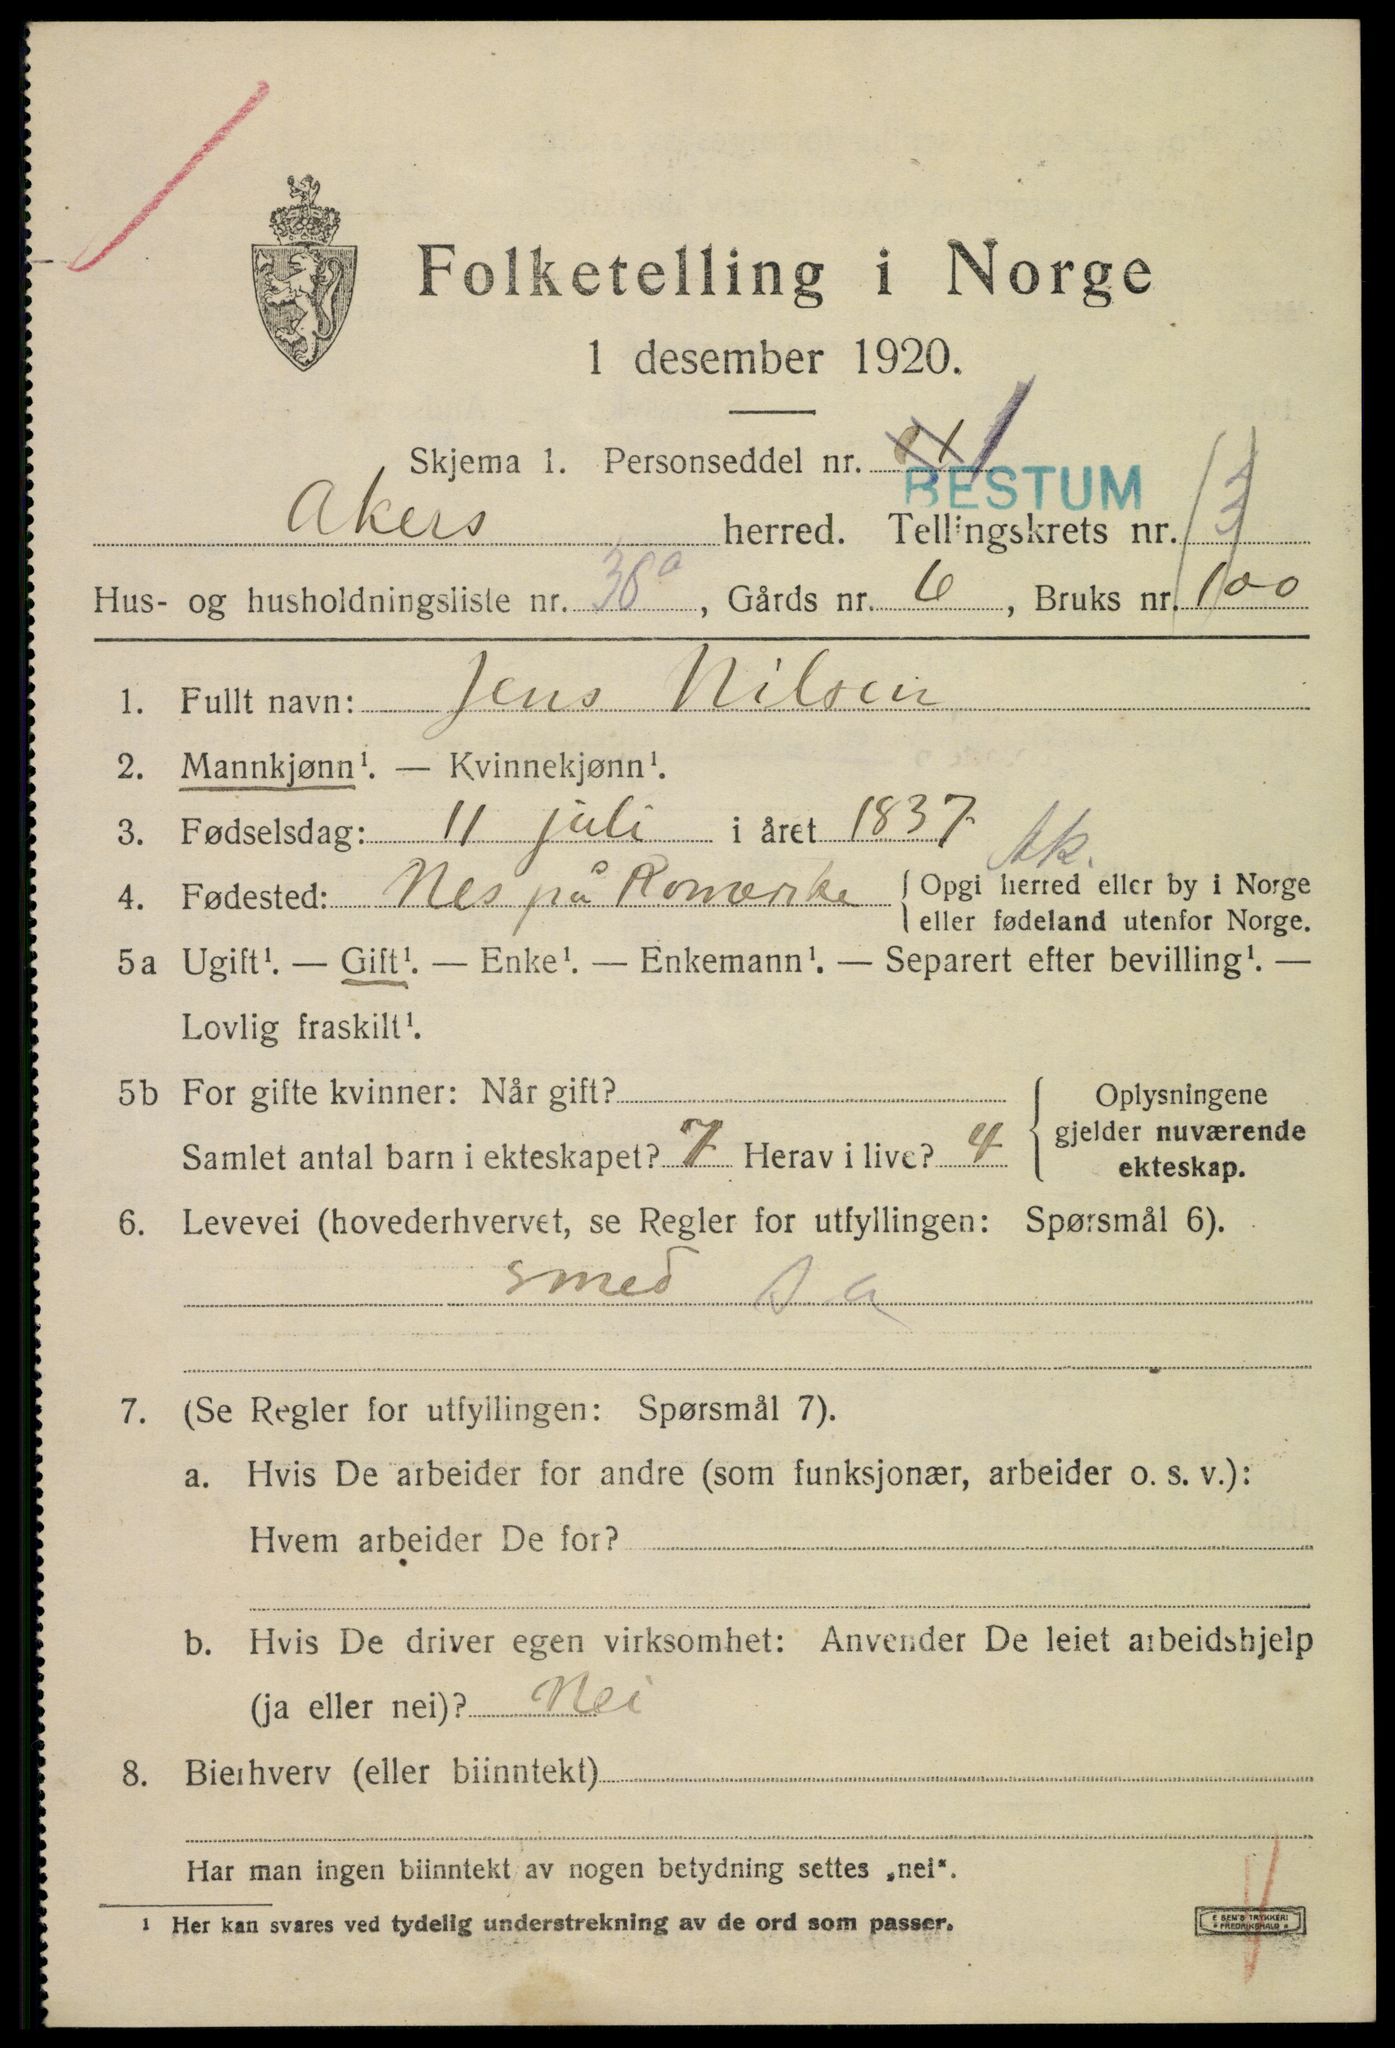 Folketelling i Norge
1 desember 1920.
Skjema 1. Personseddel nr. 1
BESTUM
Akers herred. Tellingskrets nr. 13
Hus- og husholdningsliste nr. 38a, Gårds nr. 6, Bruks nr. 100
1. Fullt navn: Jens Nilsen
2. Mannkjønn¹. — Kvinnekjønn¹.
3. Fødselsdag: 11 juli i året 1837
Ak.
4. Fødested: Nes på Romerike { Opgi herred eller by i Norge
eller fødeland utenfor Norge.
5a Ugift¹. — Gift¹. — Enke¹. — Enkemann¹. — Separert efter bevilling¹. —
Lovlig fraskilt¹.
5b For gifte kvinner: Når gift? { Oplysningene
gjelder nuværende
Samlet antal barn i ekteskapet? 7 Herav i live? 4
ekteskap.
6. Levevei (hovederhvervet, se Regler for utfyllingen: Spørsmål 6).
smed sa
7. (Se Regler for utfyllingen: Spørsmål 7).
a. Hvis De arbeider for andre (som funksjonær, arbeider o. s. v.):
Hvem arbeider De for?
b. Hvis De driver egen virksomhet: Anvender De leiet arbeidshjelp
(ja eller nei)? Nei
8. Bierhverv (eller biinntekt)
Har man ingen biinntekt av nogen betydning settes „nei“.
¹ Her kan svares ved tydelig understrekning av de ord som passer.
TRYKKERI
FREDRIKSHALD